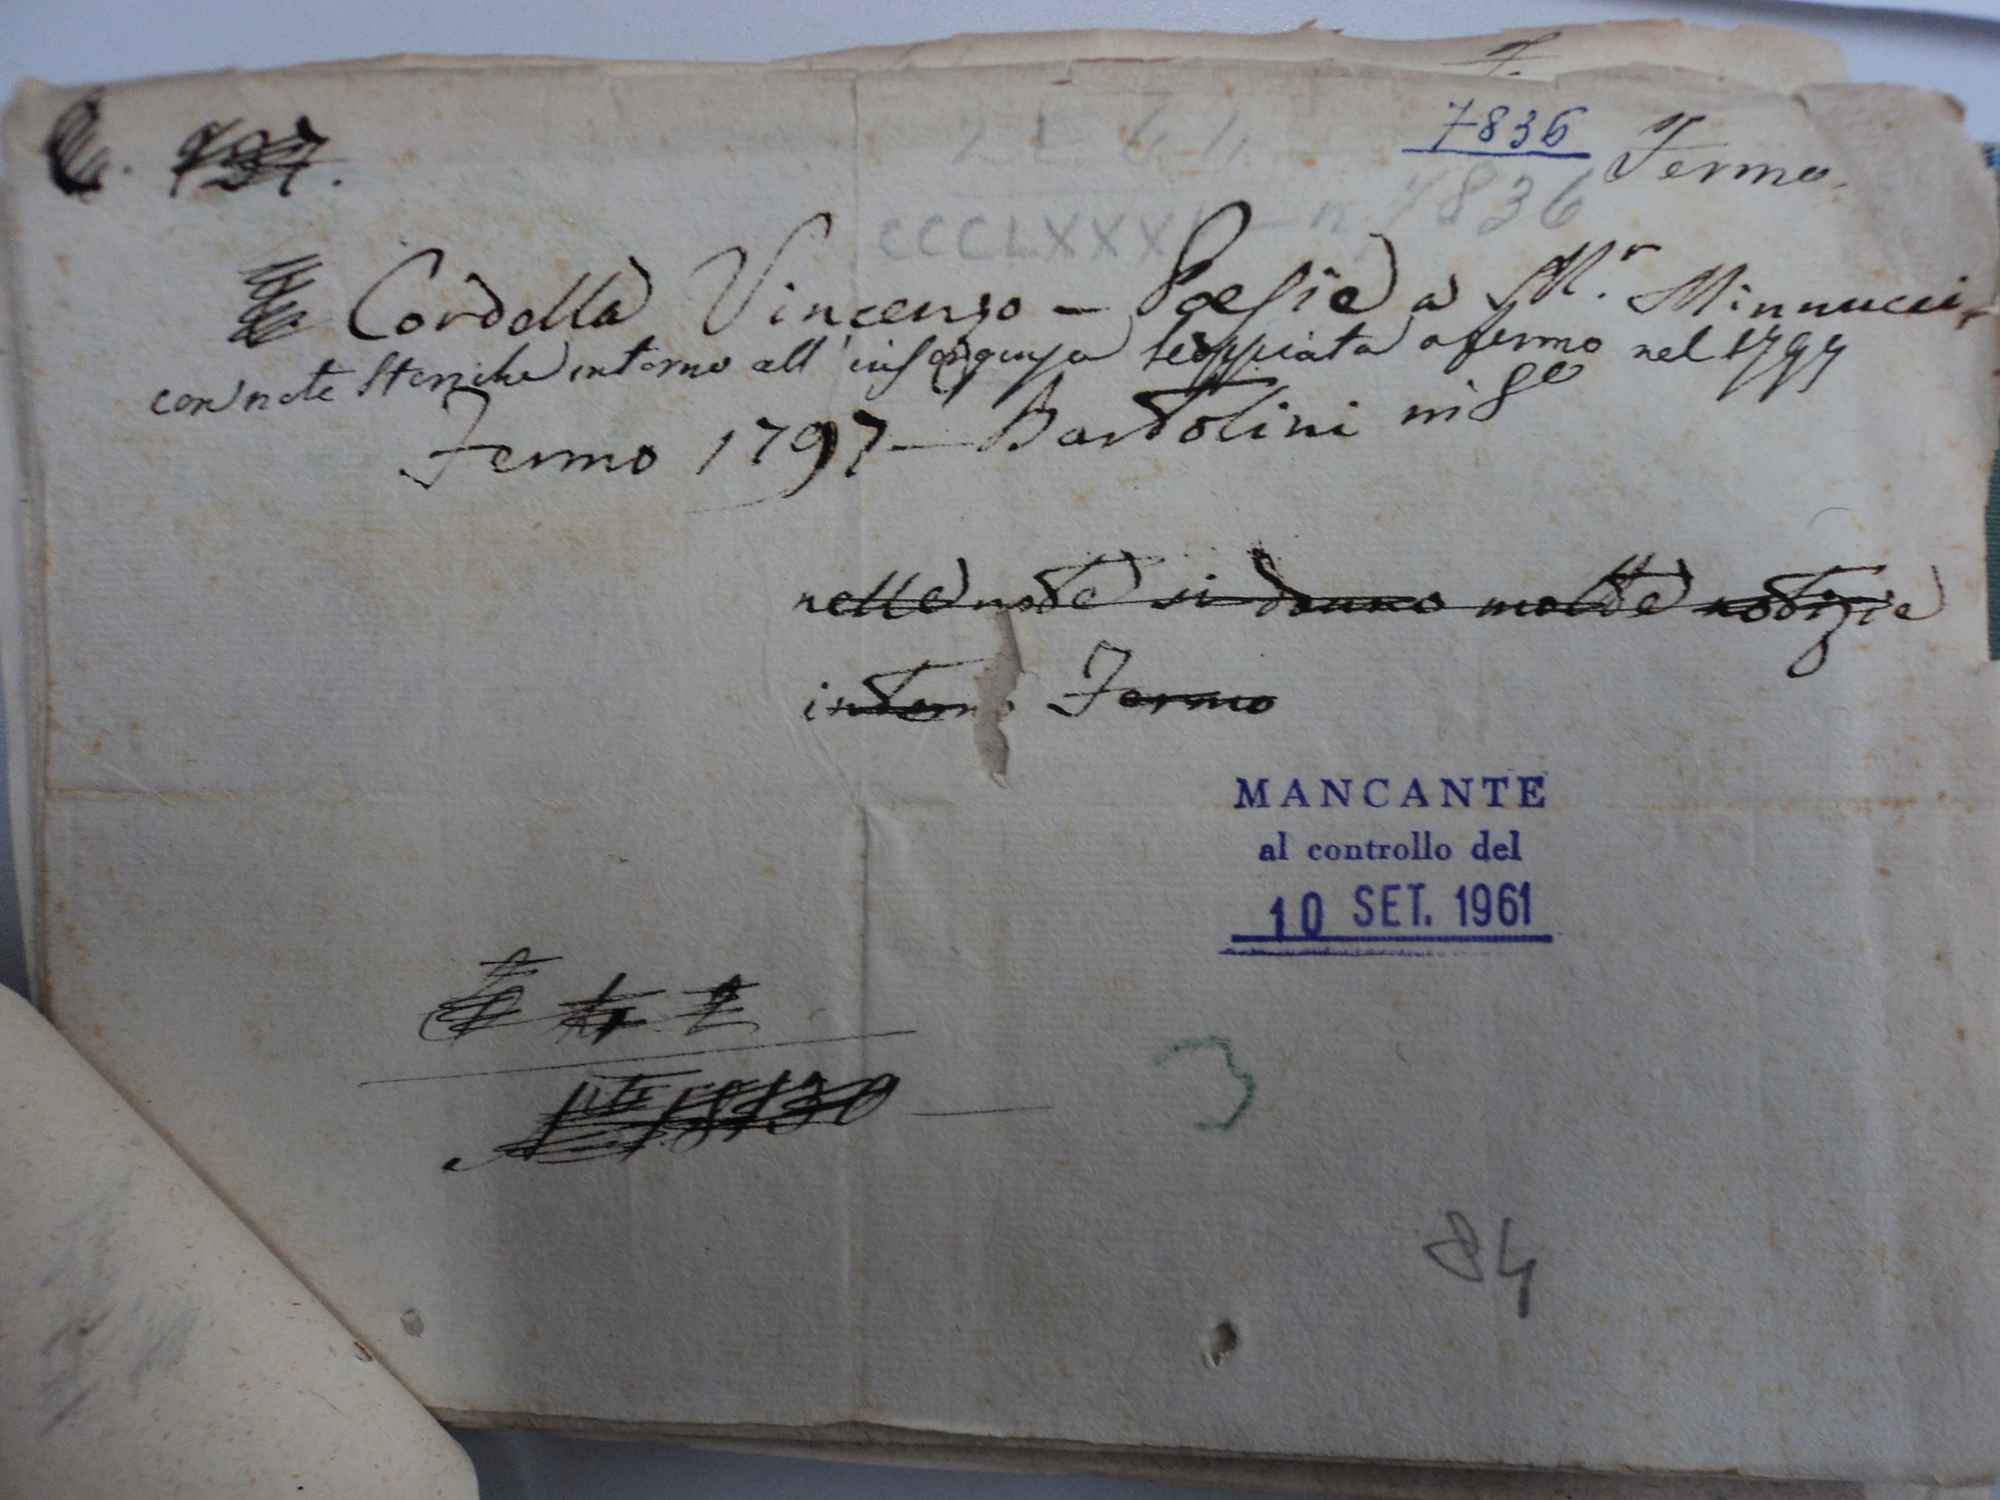 7836 Fermo.
n 7836
CCCLXXX
Cordella Vincenzo – Poesie a Mr. Minnucci
con note storiche intorno all' insorgenza scoppiata a fermo nel 1797
Fermo 1797 – Bartolini in 8º
nelle note si danno molte notizie
intorno Fermo
MANCANTE
al controllo del
10 SET. 1961
3
84